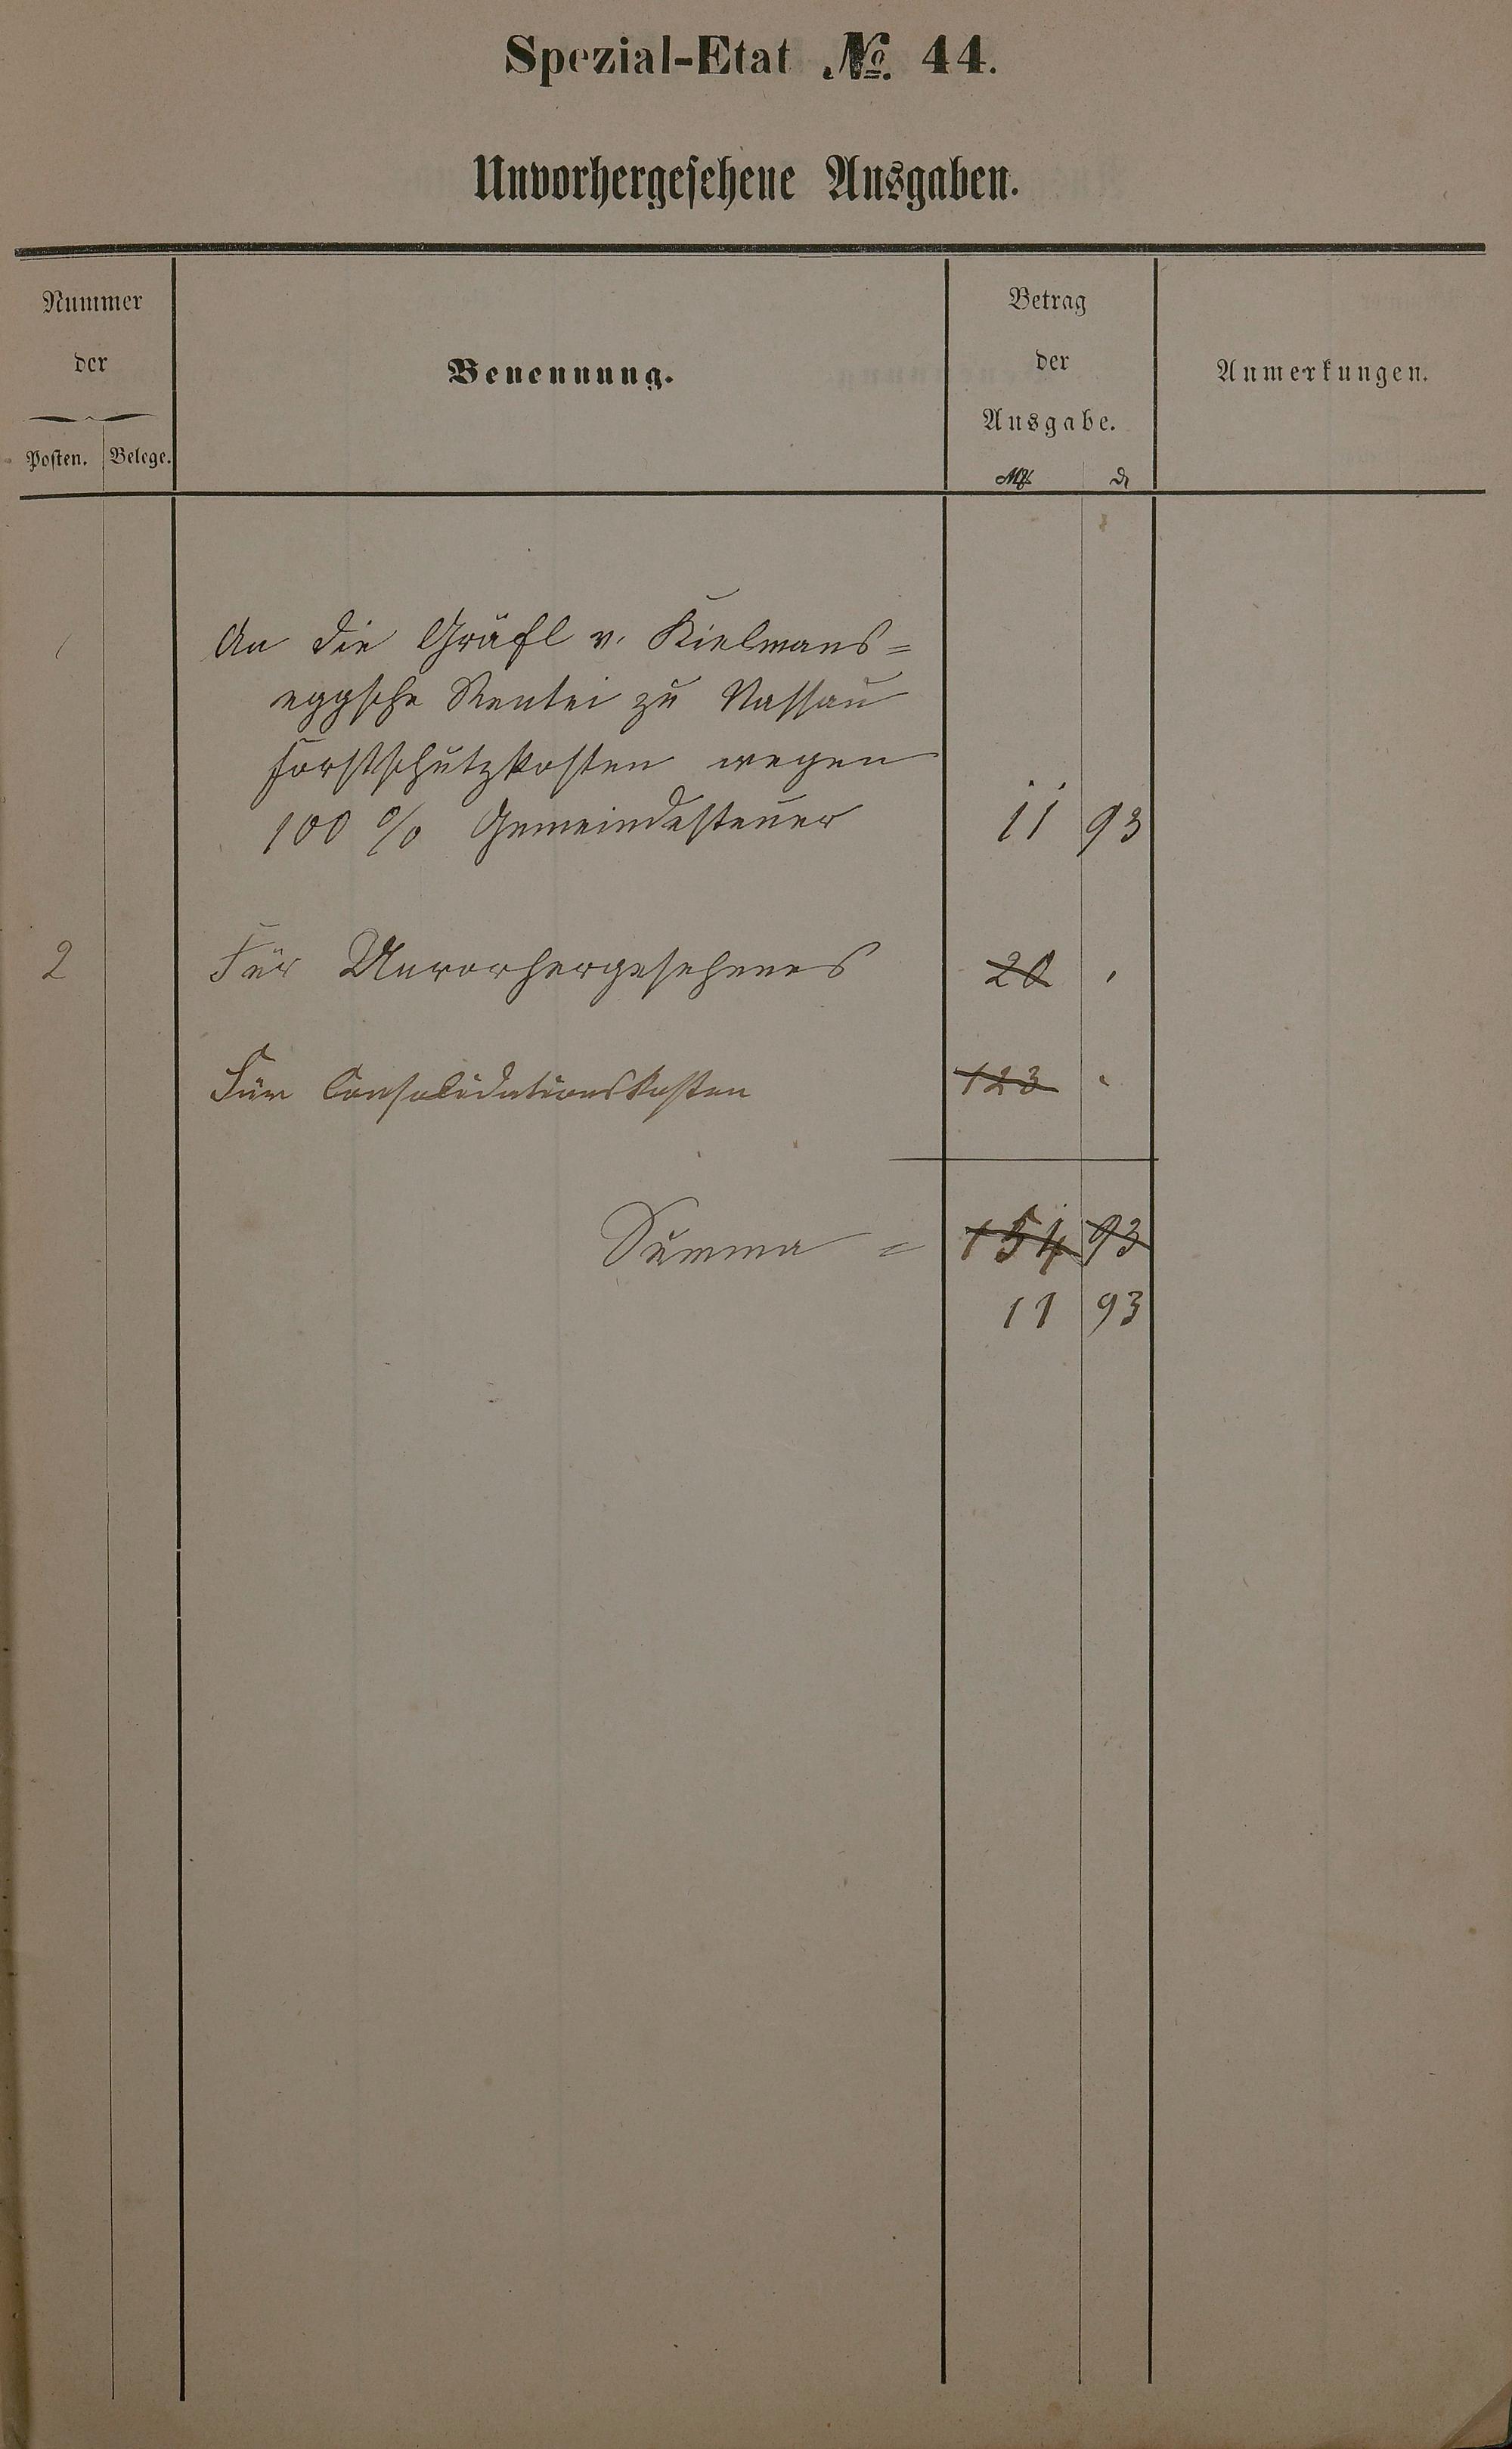 Spezial-Etat № 44.
Unvorhergesehene Ausgaben.
Nummer
der
Posten. Belege.
Benennung.
Betrag
der
Ausgabe.
M. ₰
Anmerkungen.
1 An die Gräfl v. Kielmans=
eggsche Rentei zu Nassau
Forstschutzkosten wegen
100 % Gemeindesteuer 11 93
2 Für Unvorhergesehenes 20 "
Für Consolidationskosten 123 "
Summa = 154 93
11 93